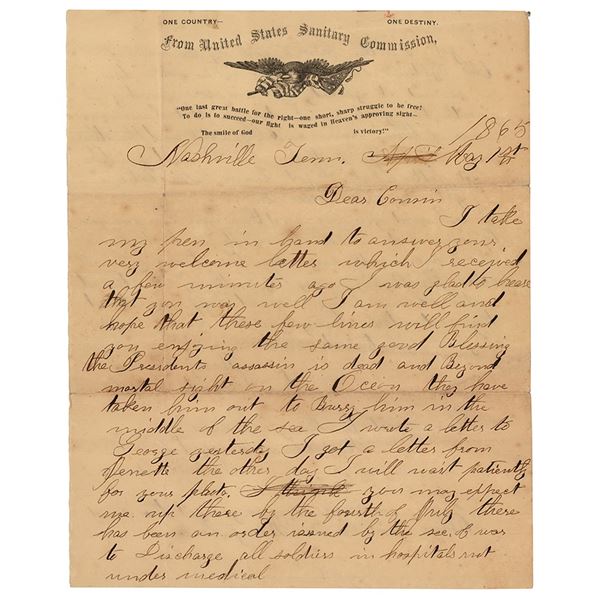 ONE COUNTRY— ONE DESTINY.
From United States Sanitary Commission,
"One last great battle for the right—one short, sharp struggle to be free!
To do is to succeed—our fight is waged in Heaven's approving sight—
The smile of God is victory!"
1865
Nashville Tenn. April May 1st
Dear Cousin
I take
my pen in hand to answer your
very welcome letter which I received
a few minutes ago I was glad to heare
that you was well I am well and
hope that these few lines will find
you enjoying the same good Blessing
the Presidents assassin is dead and Beyond
mortal sight on the Ocean they have
taken him out to Burry him in the
middle of the sea I wrote a letter to
George yesterday I got a letter from
Jenett the other day I will wait patiently
for your photo. you may expect
me up there by the fourth of July there
has been an order issued by the sec. of war
to Discharge all soldiers in hospitals not
under medical